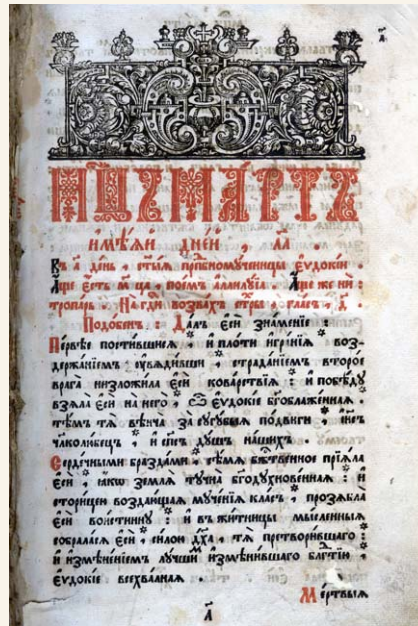 а҃.
МЦ҃Ъ МА́РТЪ
имѣ́яй дні́й , л҃а .
Въ а҃ де́нь , ст҃ы́я прпⷣбномч҃ницы є҆ѵдокі́и .
А́ще є҆́сть м҃ца , пое́мъ а҆ллилꙋ́їа . А́ще же ни :
тропа́рь . На гдⷭ҇и воззва́хъ стры̀ , гла́съ , д҃ .
Подо́бенъ . Да́лъ є҆сѝ зна́меніе :
Пе́рвѣе пости́вшися , и҆ пло́ти и҆гра́нїѧ воз-
держа́нїемъ ᲂу҆вѧди́вши , страда́нїемъ второ́е
врага̀ низложи́ла є҆сѝ кова́рствїѧ : и҆ побѣ́дꙋ
взѧ́ла є҆сѝ на него̀ , ѽ є҆ѵдокі́е бг҃облаже́ннаѧ .
тѣ́мъ тѧ̀ вѣнча̀ за сꙋгꙋ́быѧ по́двиги , і҆и҃съ
чл҃колю́бецъ , и҆ сп҃съ дꙋ́шъ на́шихъ
Серде́чными бразда́ми , сѣ́мѧ бжⷭ҇твенное прїѧ́ла
є҆сѝ , ꙗ҆́кѡ землѧ̀ тꙋ́чна бг҃одꙋхнове́ннаѧ : и҆
стори́цею воздаю́щаѧ мꙋче́нїѧ кла́съ , прозѧбла̀
є҆сѝ вои́стиннꙋ : и҆ въ жи́тницы мы́сленныѧ
собрала́сѧ є҆сѝ , си́лою дх҃а , тѧ̀ претвори́вшаго :
и҆ и҆змѣне́нїемъ лꙋ́чшим и҆змѣни́вшаго блгⷣтїю ,
є҆ѵдокі́е всехва́льнаѧ .
Ме́ртвыѧ
а҃